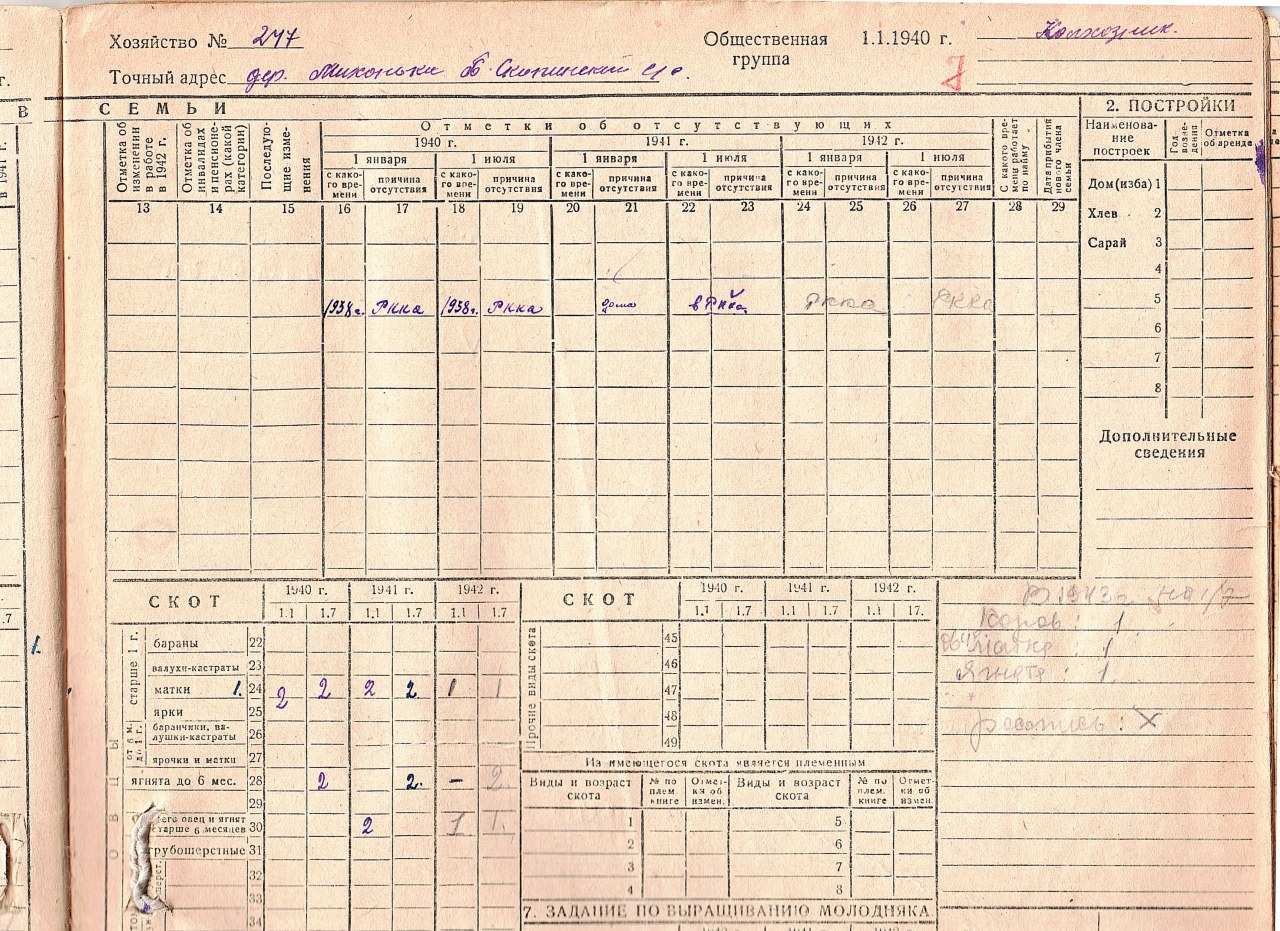 Хозяйство № 247
Общественная группа 1.1.1940 г. Колхозник.
Точный адрес дер. Миконьки Б. Скопинский с/с.
СЕМЬИ
2. ПОСТРОЙКИ
Отметка об изменении в работе в 1942 г.
Отметка об инвалидах и пенсионерах (какой категории)
Последующие изменения
Отметки об отсутствующих
1940 г. 1941 г. 1942 г.
1 января 1 июля 1 января 1 июля 1 января 1 июля
с какого времени причина отсутствия с какого времени причина отсутствия с какого времени причина отсутствия с какого времени причина отсутствия с какого времени причина отсутствия с какого времени причина отсутствия
С какого времени работает по найму
Дата прибытия нового члена семьи
13 14 15 16 17 18 19 20 21 22 23 24 25 26 27 28 29
1938г. РККА 1938г. РККА дома в РККА РККА РККА
Наименование построек
Год возведения
Отметка об аренде
Дом (изба) 1
Хлев 2
Сарай 3
4
5
6
7
8
Дополнительные сведения
СКОТ 1940 г. 1941 г. 1942 г.
1.1 1.7 1.1 1.7 1.1 1.7
старше 1 г.
бараны 22
валухи-кастраты 23
матки 1. 24 2 2 2 2. 1 1
ярки 25
от 6 м. до 1 г.
баранчики, валушки-кастраты 26
ярочки и матки 27
ягнята до 6 мес. 28 2 2. – 2.
29
его овец и ягнят старше 6 месяцев 30 2 1 1.
грубошерстные 31
32
33
34
ОВЦЫ
СКОТ 1940 г. 1941 г. 1942 г.
1.1 1.7 1.1 1.7 1.1 17.
Прочие виды скота
45
46
47
48
49
Из имеющегося скота является племенным
Виды и возраст скота № по плем. книге Отметки об измен. Виды и возраст скота № по плем. книге Отметки об измен.
1 5
2 6
3 7
4 8
7. ЗАДАНИЕ ПО ВЫРАЩИВАНИЮ МОЛОДНЯКА
В 1943 г. на 1/7
Коров: 1
матка: 1
Ягнята: 1
роспись: X